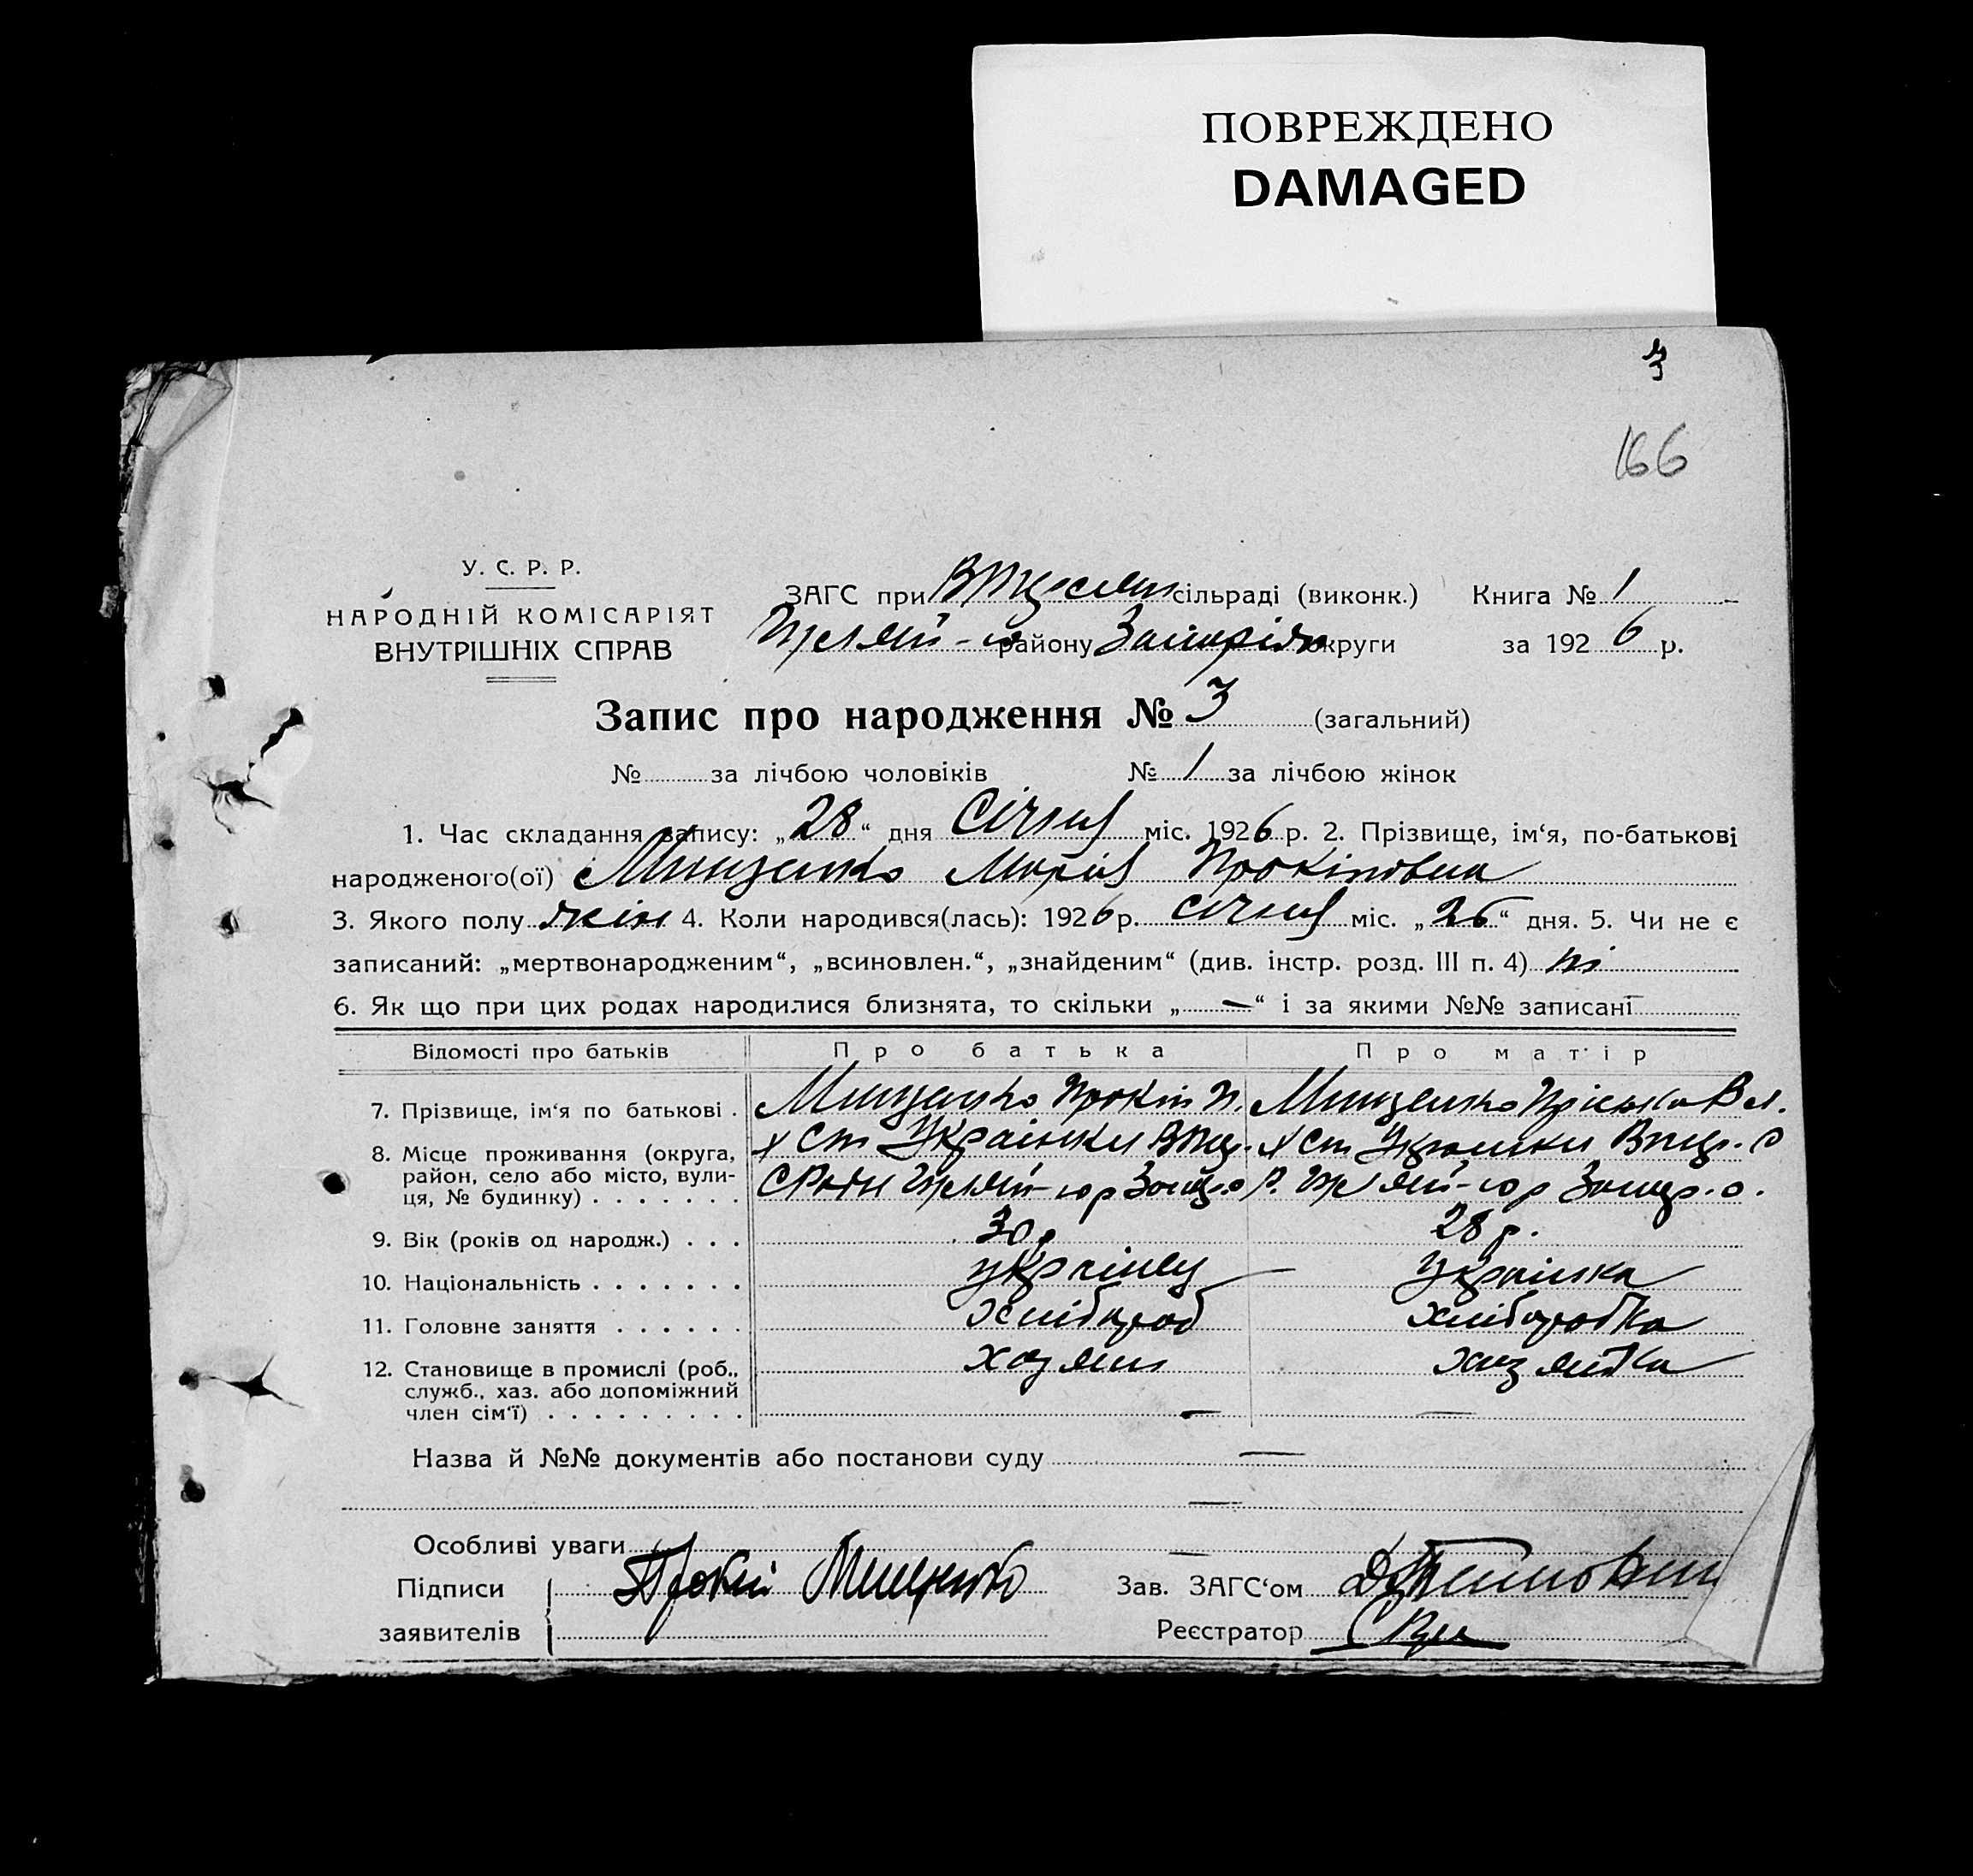 ПОВРЕЖДЕНО
DAMAGED
3
166
У. С. Р. Р.
НАРОДНІЙ КОМІСАРІЯТ
ВНУТРІШНІХ СПРАВ
ЗАГС при сільраді (виконк.) Книга № 1
району округи за 1926 р.
Запис про народження № 3 (загальний)
№ за лічбою чоловіків № 1 за лічбою жінок
1. Час складання запису: „28“ дня Січня міс. 1926 р. 2. Прізвище, ім‘я, по-батькові
народженого(ої) Мищенко Марія Прокіповна
3. Якого полу жін 4. Коли народився(лась): 1926 р. січня міс. „26“ дня. 5. Чи не є
записаний: „мертвонародженим“, „всиновлен.“, „знайденим“ (див. інстр. розд. III п. 4) ні
6. Як що при цих родах народилися близнята, то скільки „—“ і за якими №№ записані
Відомості про батьків Про батька Про матір
7. Прізвище, ім‘я по батькові . Мищенко Прокіп П. Мищенко Пріська Вл.
8. Місце проживання (округа, х Ст Українки х Ст Українки
район, село або місто, вули-
ця, № будинку) . . . . . . .
9. Вік (років од народж.) . . . 30 р 28 р.
10. Національність . . . . . . . українец українка
11. Головне заняття . . . . . . хлібороб хліборобка
12. Становище в промислі (роб., хазяин хазяйка
служб., хаз. або допоміжний
член сім‘ї) . . . . . . . . . — —
Назва й №№ документів або постанови суду —
—
Особливі уваги —
Підписи Прокіп Мищенко Зав. ЗАГС‘ом
заявителів Реєстратор